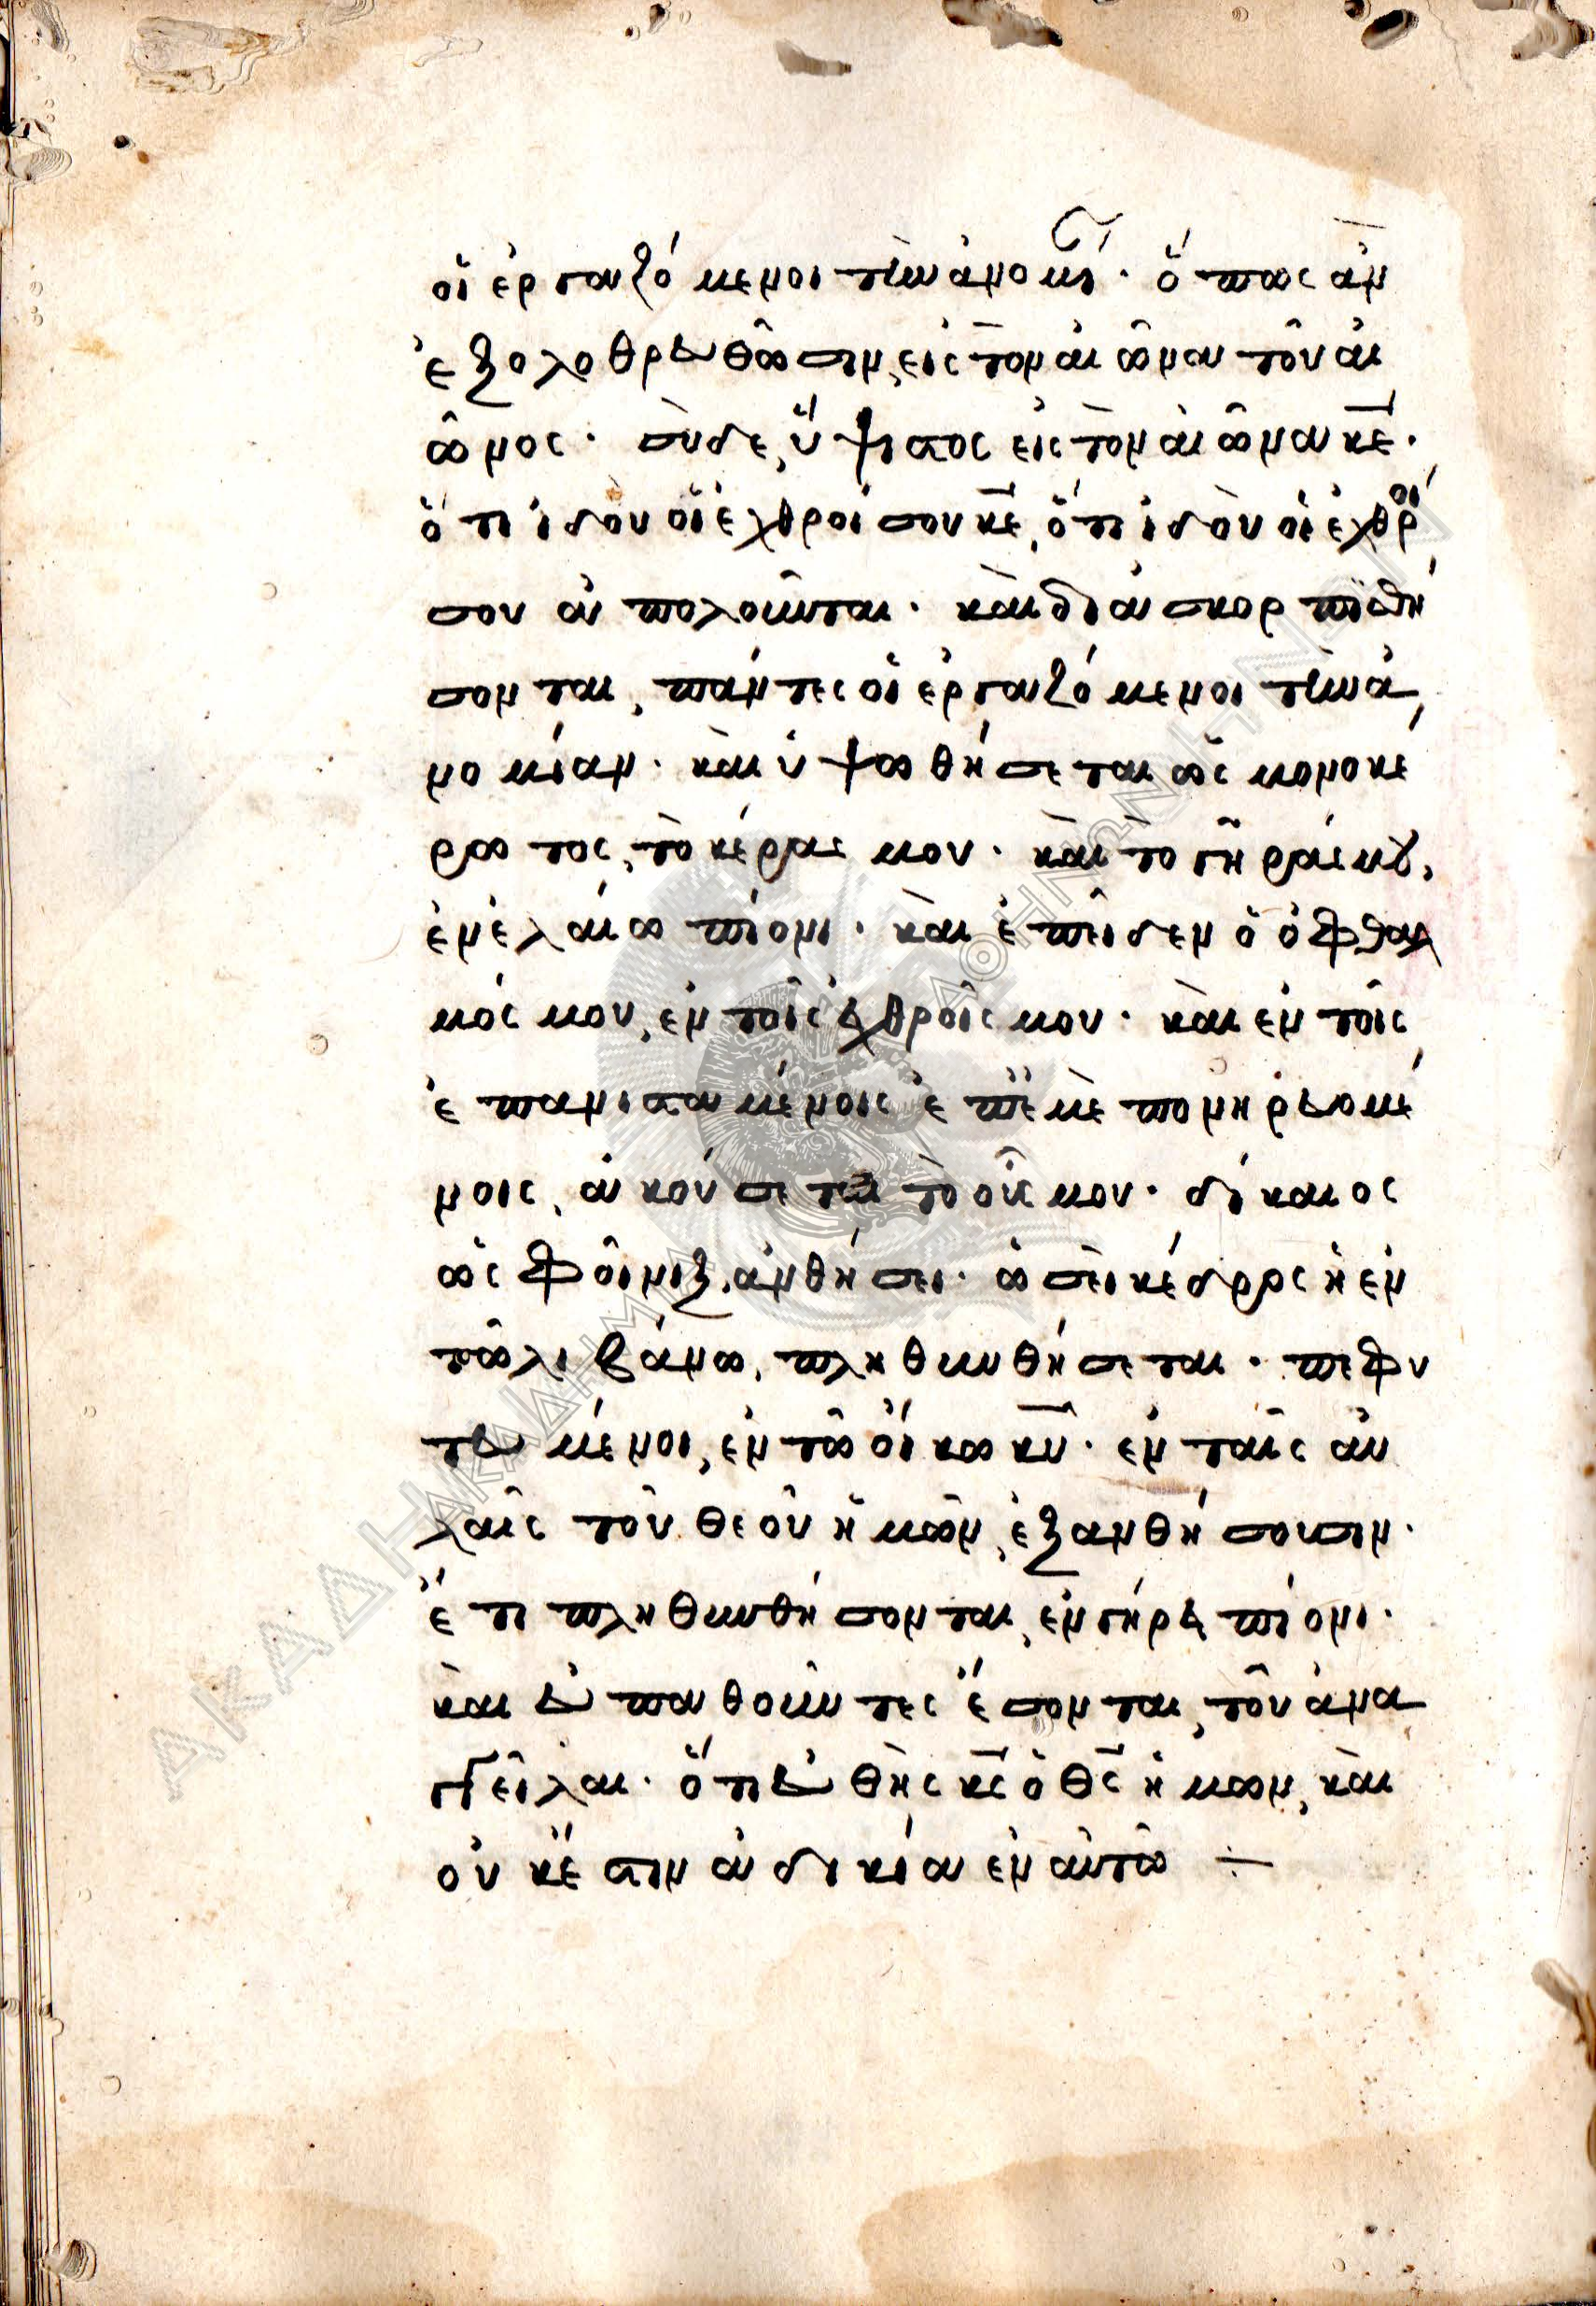 οἱ ἐργαζόμενοι τὴν ἀνομί(αν)· ὅπως ἂν
ἐξολοθρευθῶσιν, εἰς τὸν αἰῶνα τοῦ αἰ
ῶνος· σὺ δὲ, ὕψιστος εἰς τὸν αἰῶνα κε·
ὅτι ἰδοὺ οἱ ἐχθροί σου κε, ὅτι ἰδοὺ οἱ ἐχθροί
σου ἀπολοῦνται· καὶ διασκορπισθή
σονται, πάντες οἱ ἐργαζόμενοι τὴν ἀ
νομίαν· καὶ ὑψωθήσεται ὡς μονοκέ
ρωτος, τὸ κέρας μου· καὶ τὸ γῆράς μου,
ἐν ἐλαίω πίονι· καὶ ἐπεῖδεν ὁ ὀφθαλ
μός μου, ἐν τοῖς ἐχθροῖς μου· καὶ ἐν τοῖς
ἐπανισταμένοις ἐπ' ἐμὲ πονηρευομέ
νοις, ἀκούσεται τὸ οὖς μου· δίκαιος
ὡς φοῖνιξ, ἀνθήσει· ὡσεὶ κέδρος ἡ ἐν
τῶ λιβάνω, πληθυνθήσεται· πεφυ
τευμένοι, ἐν τῶ οἴκω κυ· ἐν ταῖς αὐ
λαῖς τοῦ θεοῦ ἡμῶν, ἐξανθήσουσιν·
ἔτι πληθυνθήσονται, ἐν γήρει πίονι·
καὶ εὐπαθοῦντες ἔσονται, τοῦ ἀνα
γγεῖλαι· ὅτι εὐθὴς κς ὁ θς ἡμων, καὶ
οὐκ ἔστιν ἀδικία ἐν αὐτῶ ÷
ΑΚΑΔΗΜΙΑ ΑΘΗΝΩΝ